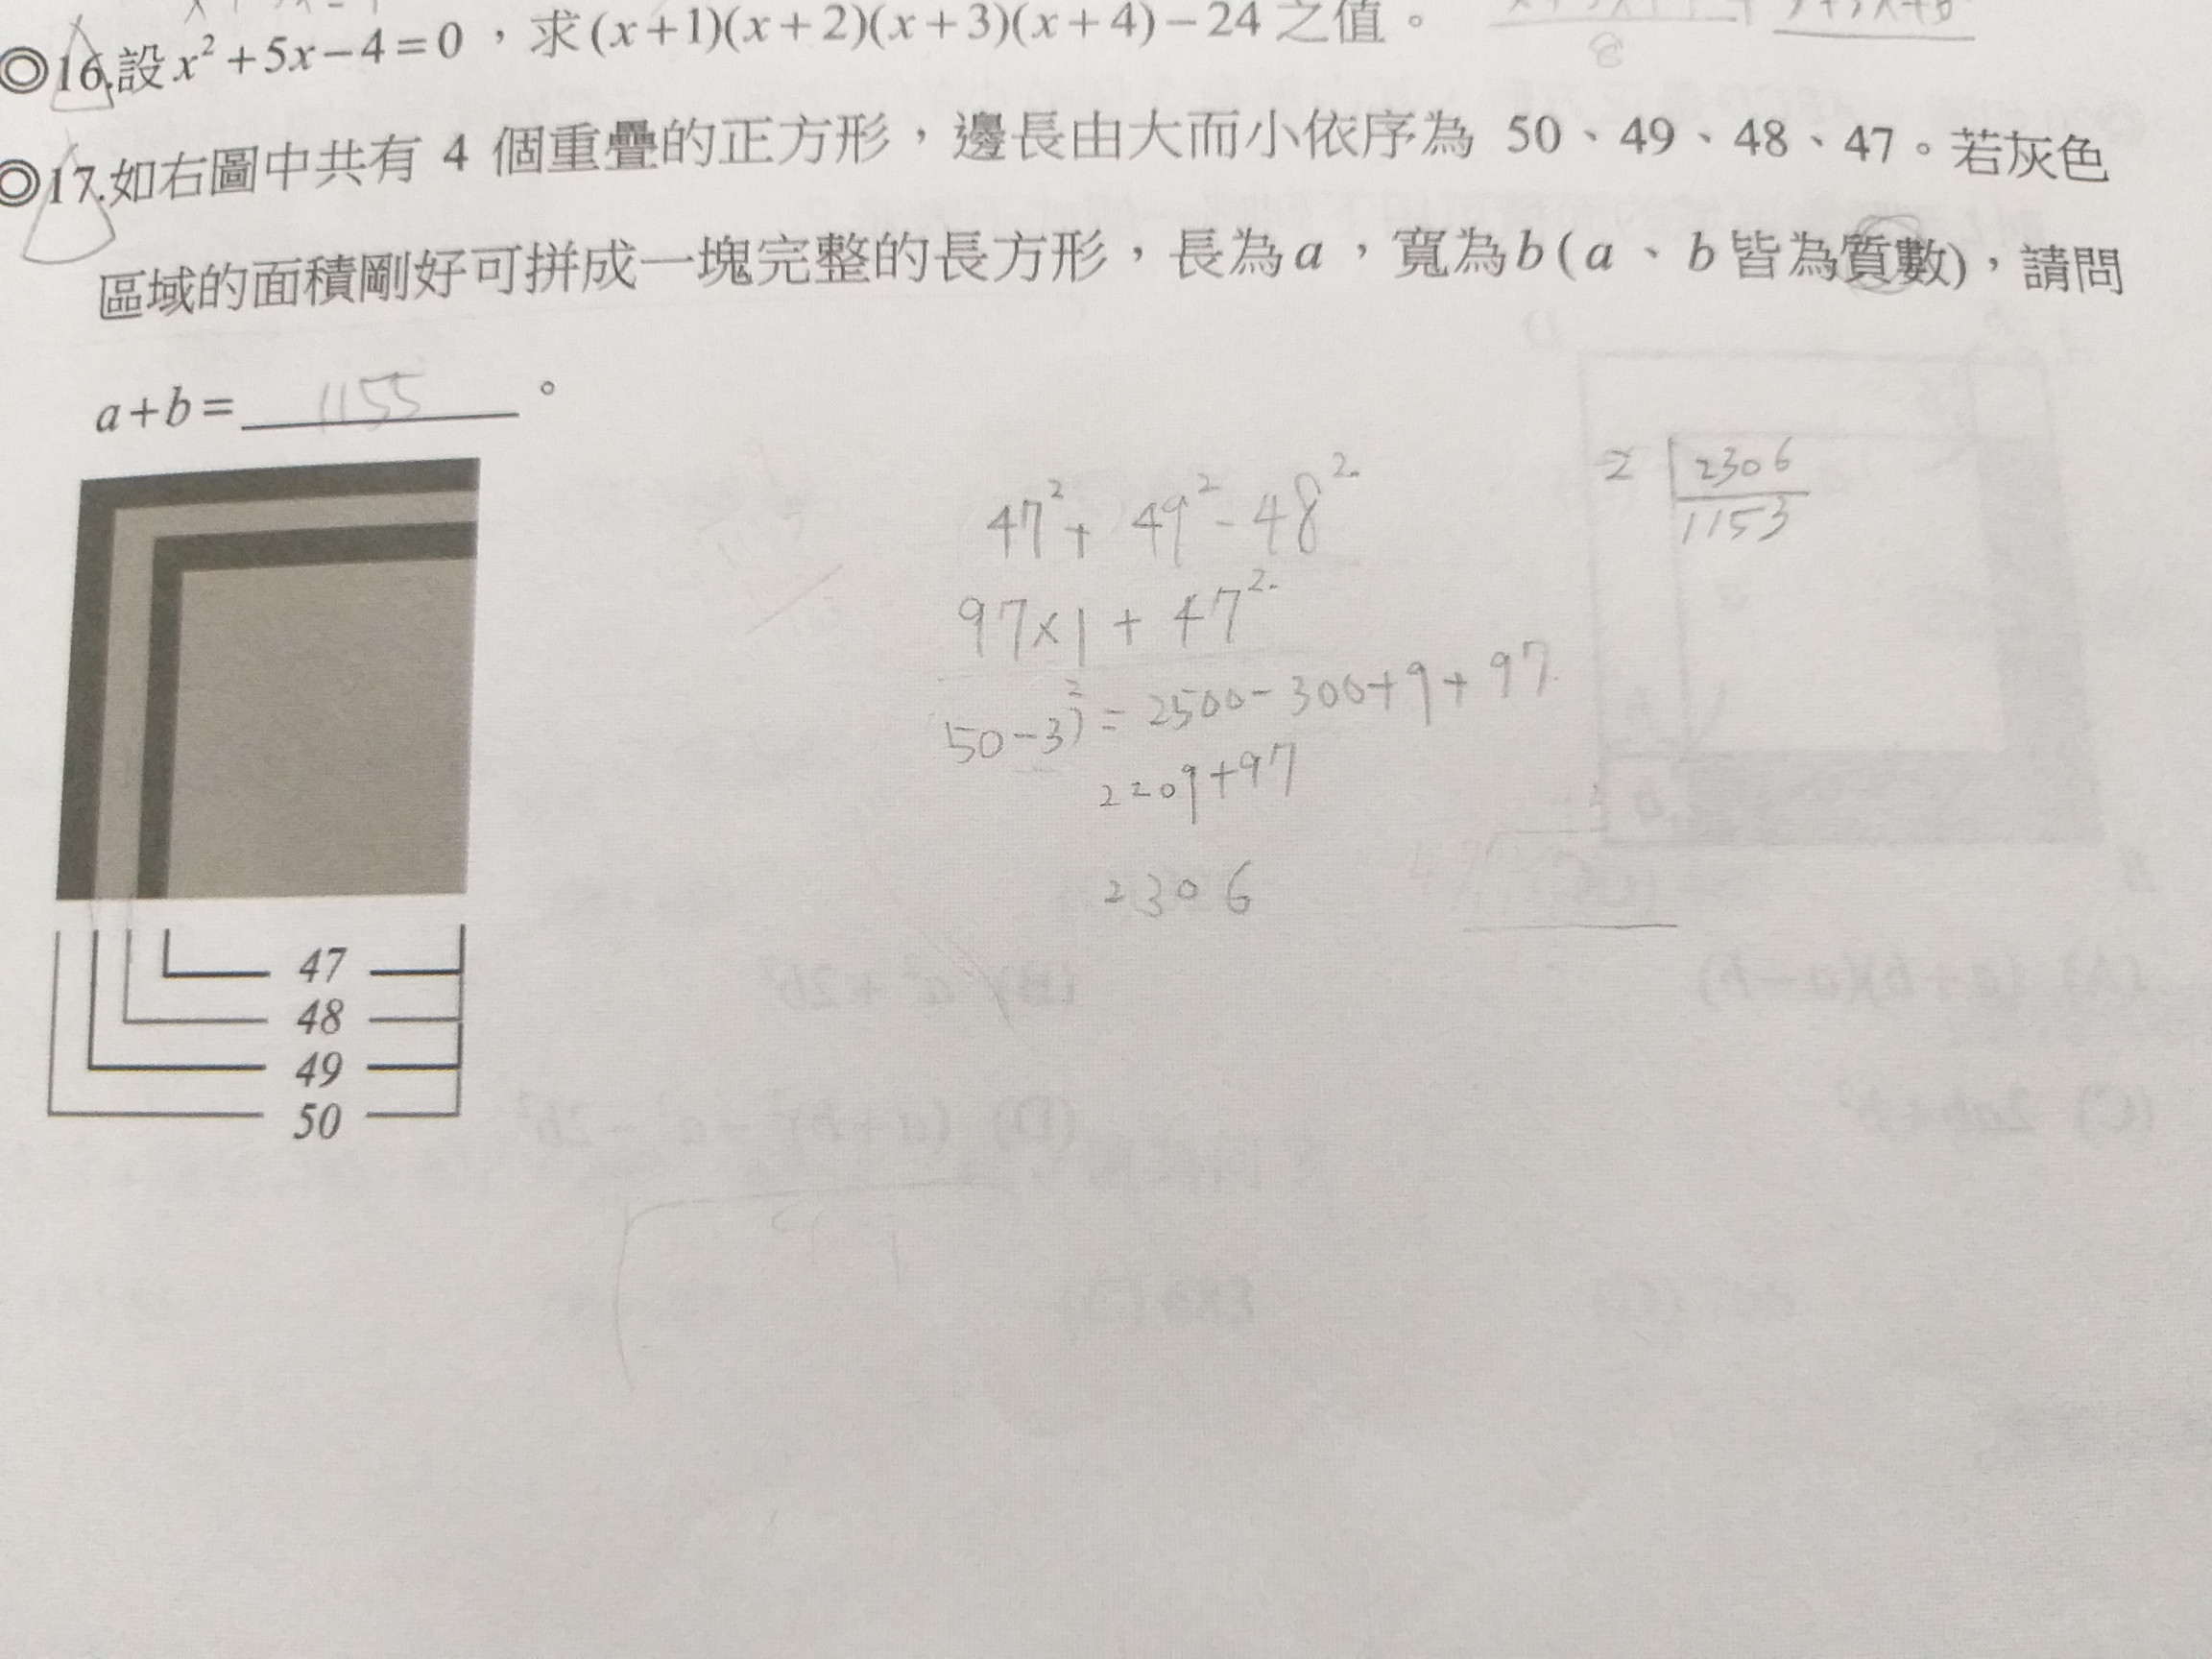 ◎16.設x²+5x-4=0，求(x+1)(x+2)(x+3)(x+4)-24之值。
8
◎17.如右圖中共有 4 個重疊的正方形，邊長由大而小依序為 50、49、48、47。若灰色
區域的面積剛好可拼成一塊完整的長方形，長為a，寬為b(a、b皆為質數)，請問
a+b= 1155 。
47²+49²-48²
97×1+47²
50-3)²=2500-300+9+97
2209+97
2306
2 2306
1153
47
48
49
50